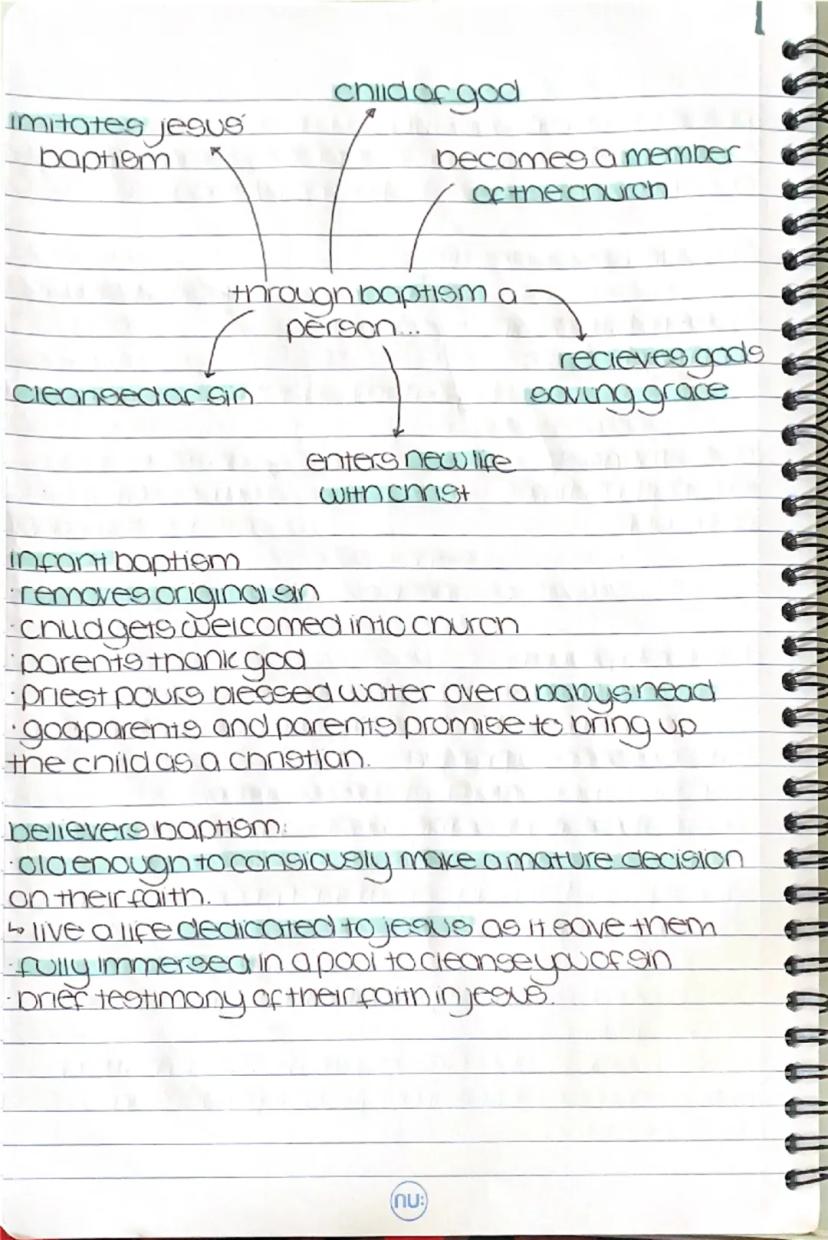 child of god
imitates jesus'
baptism
becomes a member
of the church
through baptism a
person...
recieves gods
saving grace
cleansed of sin
enters new life
with christ
infant baptism
·removes original sin
·child gets welcomed into church
·parents thank god
·priest pours blessed water over a babys head
·godparents and parents promise to bring up
the child as a christian.
believers baptism:
·old enough to consiously make a mature decision
on their faith.
↳ live a life dedicated to jesus as it save them
·fully immersed in a pool to cleanse you of sin
·brief testimony of their faith in jesus.
nu: